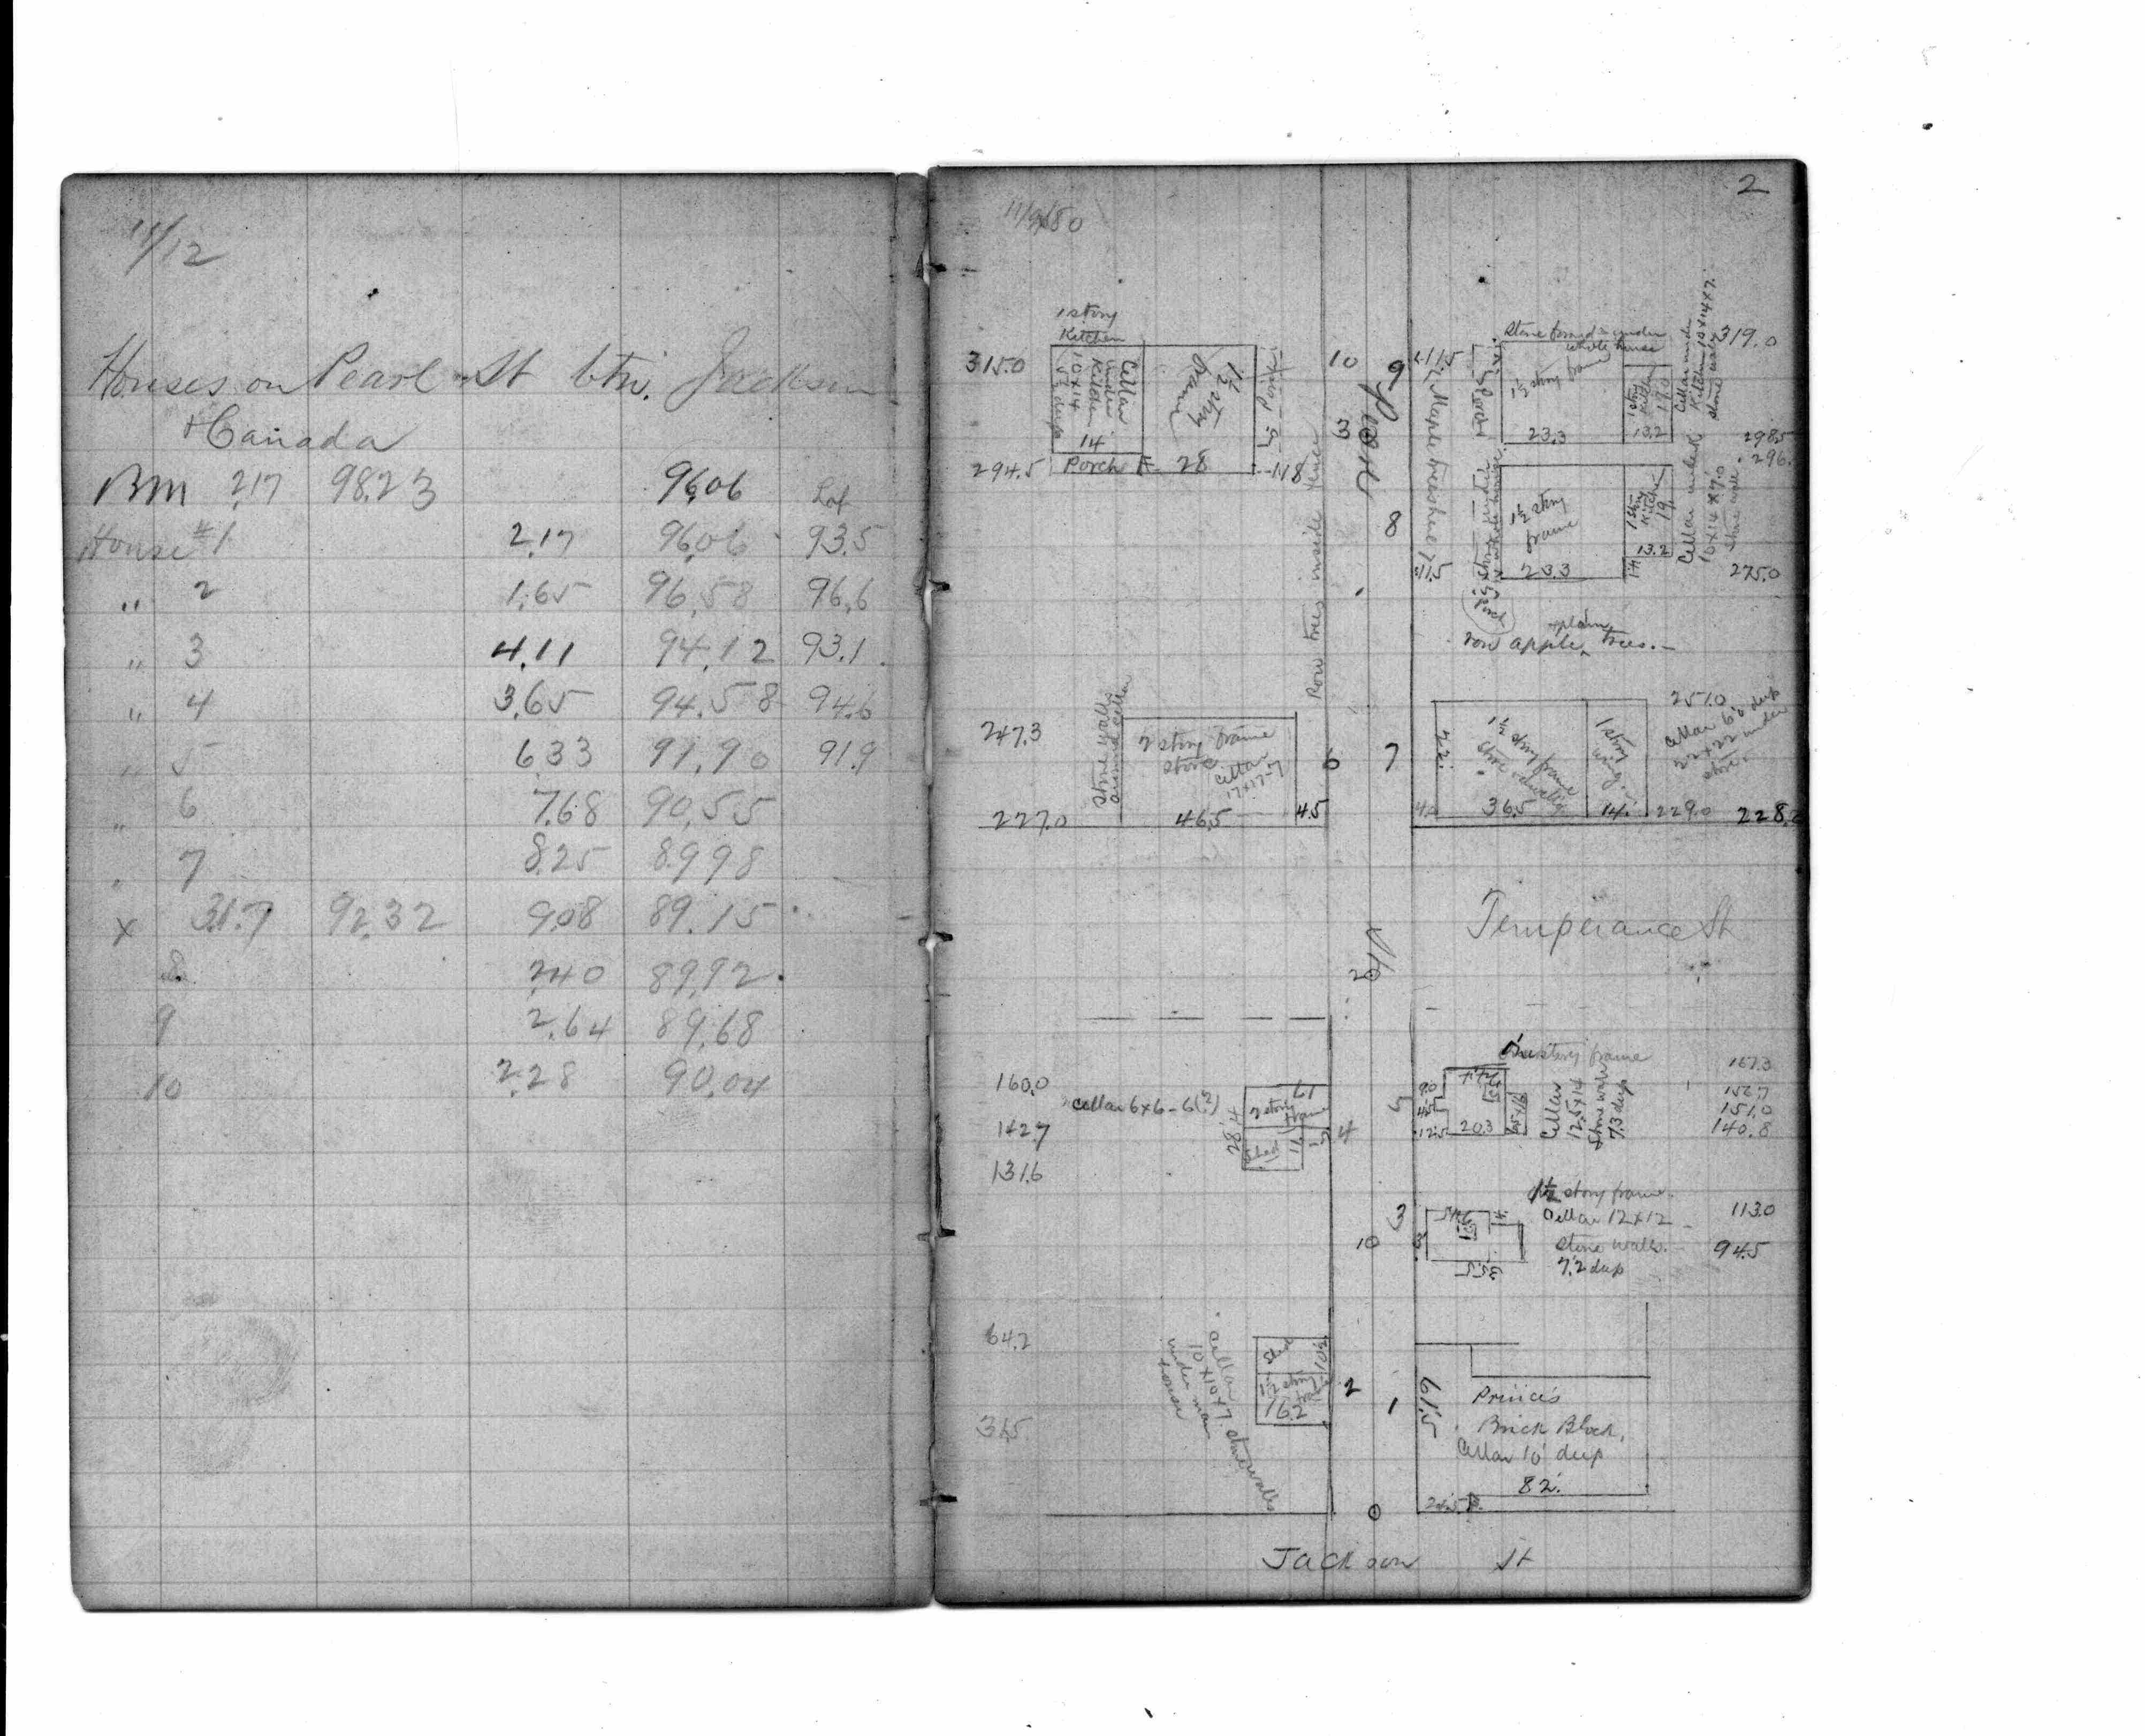 11/12
Houses on Pearl St btw. Jackson
& Canada
BM 2.17 98.23 96.06 Lot
House #1 2.17 96.06 93.5
" 2 1.65 96.58 96.6
" 3 4.11 94.12 93.1
" 4 3.65 94.58 94.6
" 5 6.33 91.90 91.9
" 6 7.68 90.55
" 7 8.25 89.98
x 3.17 92.32 9.08 89.15
8 2.40 89.92
9 2.64 89.68
10 2.28 90.04
2
11/9/80
1 story
Kitchen
315.0
Cellar
under
Kitchen
10 x 14
14
1½ story
frame
Porch
28
294.5
11.8
10
9
Pearl
8
11.5
Maple trees here
Porch
Stone found. under
whole house
1½ story frame
23.3
1 story
Kitchen
19.0
13.2
Cellar under
Kitchen 10 x 14 x 7.
Stone walls
319.0
298.5
296.
1½ story
frame
23.3
1 story
Kitchen
19
13.2
Cellar under K
10 x 14 x 7.0
Stone walls
275.0
11.5
Porch
Row trees inside fence
+ plum
row apple trees.
247.3
Stone walls
around cellar
2 story frame
store
Cellar
17 x 17 - 7
227.0
46.5
4.5
6
7
22.
1½ story frame
store & dwelling
36.5
1 story
wing
14.
251.0
Cellar 6.0 deep
22 x 22 under
store.
229.0
228.2
Temperance St
St
160.0
Cellar 6x6-6(?)
142.7
131.6
28.4
2 story
frame
17
Shed
11.
4
5
One story frame
9.0
4.5
12.5
20.3
Cellar
12.5 x 14
Stone walls
7.3 deep
167.3
156.7
151.0
140.8
3
10
1½ story frame.
Cellar 12 x 12
Stone walls.
7.2 deep
24.5
35.5
113.0
94.5
64.2
Cellar
10 x 10 x 7 stone walls
under main
house
Shed
10½
1½ story
frame
16.2
36.5
2
1
61.5
Prince's
Brick Block,
Cellar 10' deep
82.
Jackson St